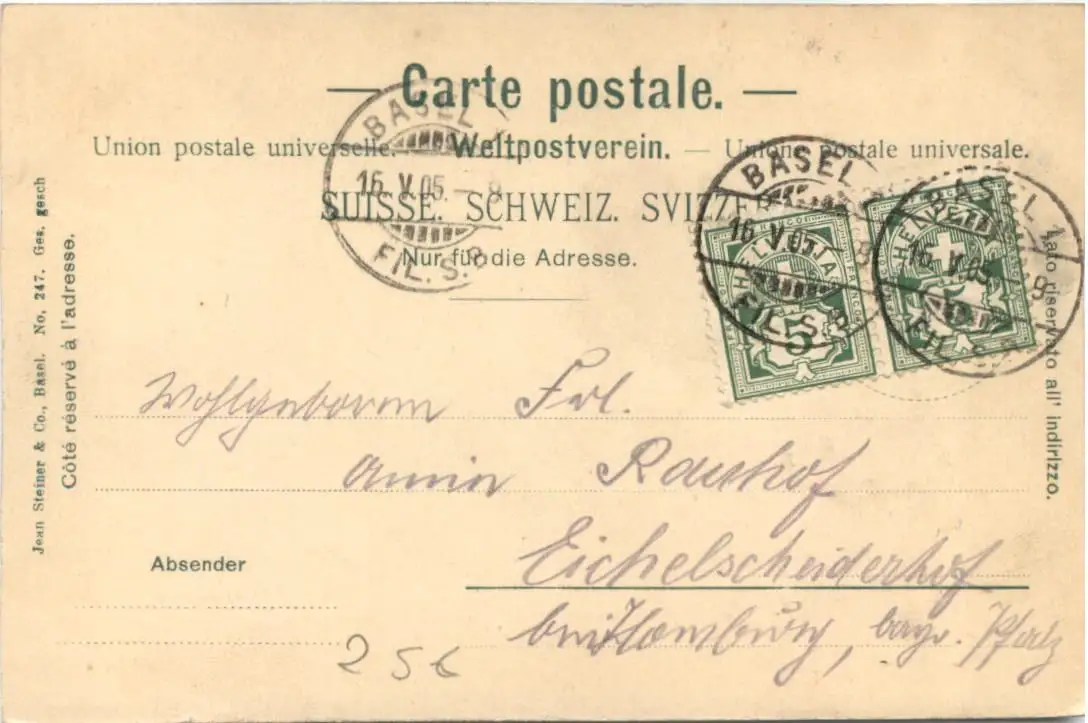 — Carte postale. —
Union postale universelle. — Weltpostverein. — Unione postale universale.
SUISSE. SCHWEIZ. SVIZZERA
Nur für die Adresse.
BASEL
16. V. 05. – 8
FIL. S. B
BASEL
16. V. 05. 8
FIL. S. B
BASEL
16. V. 05. – 8
FIL. S. B
HELVETIA
5
HELVETIA
5
Jean Steiner & Co., Basel. No. 247. Ges. gesch
Côté réservé à l'adresse.
Lato riservato all' indirizzo.
Wohlgeboren Frl.
Rauhof
Eichelscheiderhof
bei Homburg, bayr. Pfalz
Absender
256